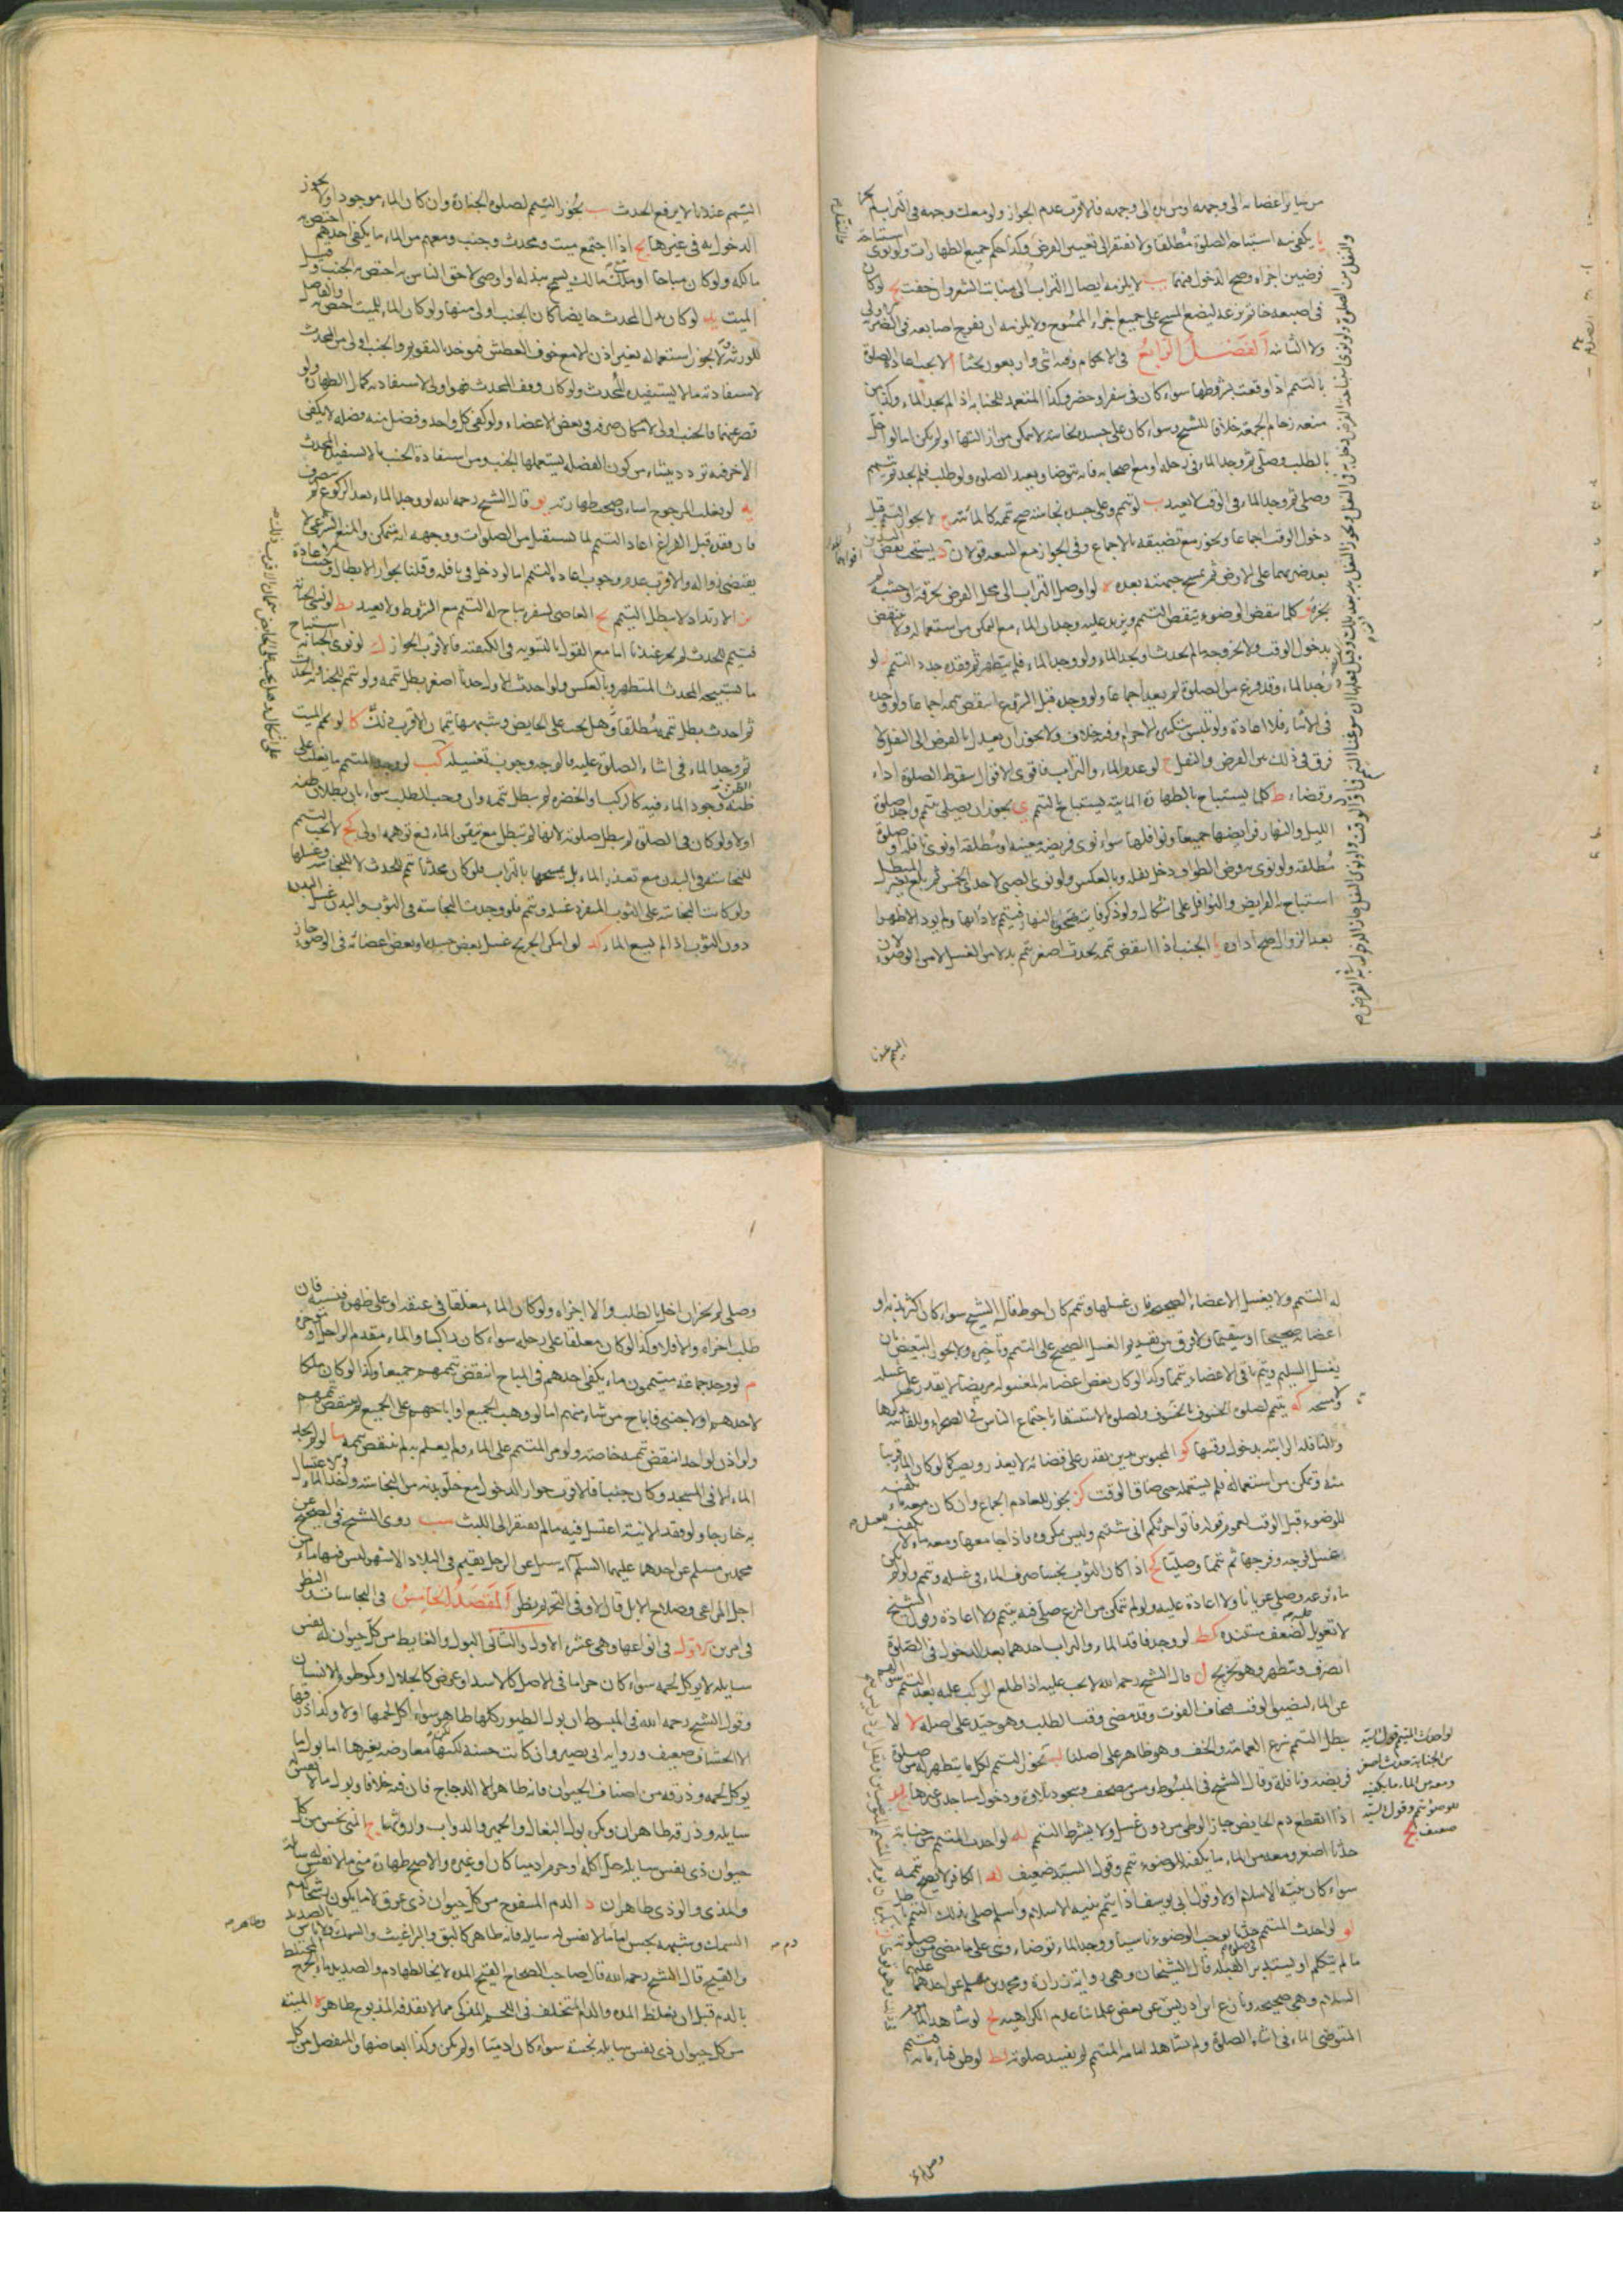 من سائر اعضائه الى وجهه او من يديه الى وجهه فالاقرب عدم الجواز ولو معك وجهه فى التراب لم يجز
يا يكفى نيه استباحه الصلوة مطلقا ولا تفتقر الى تعيين الفرض وكذا حكم جميع الطهارات ولو نوى استباحة
فرضين اجزاه وصح الدخول فيهما يب لا يلزمه ايصال التراب الى منابت الشعر وان خفت يج لو كان
فى اصبعه خاتم نزعه ليضع المسح على جميع اجزاء الممسوح ولا يلزمه ان يفرج اصابعه فى الضربة الاولى
ولا الثانيه الفصل الرابع فى الاحكام وفيه اثنى واربعون بحثا ا لا يجب اعادة الصلوة
بالتيمم اذا وقعت بشروطها سواء كان فى سفر او حضر وكذا المتعمد للجنابه اذا لم يجد الماء وكذا من
منعه زحام الجمعه خلافا للشيخ وسواء كان على جسده نجاسه لا يمكن من ازالتها او لم يكن اما لو اخل
بالطلب وصلى ثم وجد الماء فى رحله او مع اصحابه فانه يتوضأ ويعيد الصلوه ولو طلب فلم يجد ثم تيمم
وصلى ثم وجد الماء فى الوقت لا يعيد ب لو تيمم وعلى جسده نجاسه صح تيممه كالمائيه ج لا يجوز التيمم قبل
دخول الوقت اجماعا ويجوز مع تضيقه بالاجماع وفى الجواز مع السعه قولان د يستحب نفض اليدين
بعد ضربهما على الارض ثم يمسح جبهته بعده ه لو اوصل التراب الى محل الفرض بخرقة او خشبة لم
يجزه و كلما ينقض الوضوء ينقض التيمم ويزيد عليه وجدان الماء مع التمكن من استعماله ولا ينتقض
بدخول الوقت ولا بخروجه ما لم يحدث او يجد الماء ولو وجد الماء فلم يتطهر ثم فقده جدد التيمم ز لو
وجد الماء وقد فرغ من الصلوة لم يعد اجماعا ولو وجده قبل الشروع انتقض تيممه اجماعا ولو وجده
فى الاثناء فلا اعادة ولو تلبس بتكبيرة الاحرام وفيه خلاف ولا يجوز ان يعدل بالفرض الى النفل لا
فرق فى ذلك بين الفرض والنفل ح لو عدم الماء والتراب فاقوى الاقوال سقوط الصلوة اداء
وقضاء ط كلما يستباح بالطهارة المائيه يستباح بالتيمم ى يجوز ان يصلى بتيمم واحد صلوة
الليل والنهار فرايضها جميعا ونوافلها سواء نوى فريضه معينه او مطلقه او نوى نافله او صلوة
مطلقه ولو نوى فرض الطواف دخل نفله وبالعكس ولو نوى الصبى لاحدى الخمس ثم بلغ بغير المبطل
استباح به الفرايض والنوافل على اشكال ولو ذكر فايته ضحوة النهار فتيمم لادائها ولم يود الا ظهرا
بعد الزوال صح اداوه يا الجنب اذا انتقض تيممه بحدث اصغر تيمم بدلا من الغسل لا من الوضوء لان
التيمم عندنا
التيمم عندنا لا يرفع الحدث يب يجوز التيمم لصلوة الجنازة وان كان الماء موجودا ولا يجوز
الدخول به فى غيرها يج اذا اجتمع ميت ومحدث وجنب ومعهم من الماء ما يكفى احدهم اختص به
مالكه ولو كان مباحا او ملك مالك يسمح ببذله او اوصى لاحق الناس به اختص به الجنب وقيل
الميت يد لو كان بدل المحدث حايضا كان الجنب اولى منها ولو كان الماء للميت اختص به
للورثه ولا يجوز استعماله بغير اذن الا مع خوف العطش فيوخذ بالتقويم والجنب اولى من المحدث
لاستفادته ما لا يستفيده المحدث ولو كان وفق المحدث فهو اولى لاستفادته كمال الطهارة ولو
قصر عنهما فالجنب اولى لامكان صرفه فى بعض الاعضاء ولو كفى كل واحد وفضل منه فضله لا يكفى
الاخر ففيه تردد ينشاء من كون الفضله يستعملها الجنب ومن استفادة الجنب ما لا يستفيد المحدث
يه لو تغلب المرجوح اساء وصحت طهارته يو قال الشيخ رحمه الله لو وجد الماء بعد الركوع
فان فقده قبل الفراغ اعاد التيمم لما يستقبل من الصلوات ووجهه انه متمكن والمنع الشرعى لا
يقتضى زواله والاقرب عدم وجوب اعادة التيمم اما لو دخل فى نافله وقلنا بجواز الابطال وجبت الاعادة
يز الارتداد لا يبطل التيمم يح العاصى بسفره يباح له التيمم مع الشروط ولا يعيد يط لو نسى الجنابة
فتيمم للحدث لم يجز عندنا اما مع القول بالتسويه فى الكيفيه فالاقرب الجواز ك لو نوى الجنابة استباح
ما يستبيحه المحدث المتطهر وبالعكس ولو احدث الاول حدثا اصغر بطل تيممه ولو تيمم للجنابه والحدث
ثم احدث بطل تيممه مطلقا وهل يجب على الحايض وشبهها تيممان الاقرب ذلك كا لو يمم الميت
ثم وجد الماء فى اثناء الصلوة عليه فالوجه وجوب تغسيله كب لو وجد المتيمم ما يغلب على
ظنه وجود الماء فيه كالركب والخضرة لم يبطل تيممه وان وجب الطلب سواء بان بطلان ظنه
اولا ولو كان فى الصلوة لم تبطل صلوته لانها لم تبطل مع تيقن الماء فمع توهمه اولى كج لا يجب التيمم
للنجاسه فى البدن مع تعذر الماء بل يمسحها بالتراب ولو كان محدثا تيمم للحدث لا للنجاسه وغسلها
ولو كانت النجاسه على الثوب المنفرد غسله وتيمم فلو وجدت النجاسه فى الثوب والبدن غسل البدن
دون الثوب اذا لم يسع الماء كد لو امكن الجريح غسل بعض جسده او بعض اعضائه فى الوضوء جاز
له التيمم ولا يغسل الاعضاء الصحيحة فان غسلها وتيمم كان احوط قال الشيخ سواء كان اكثر بدنه او
اعضائه صحيحا او سقيما ولا فرق بين تقديم الغسل الصحيح على التيمم وتأخيره ولا يجوز التبعيض بان
يغسل السليم وتيمم باقى الاعضاء تيمما وكذا لو كان بعض اعضائه المغسوله مريضا لا يقدر على غسله
ولا مسحه كه يتيمم لصلوة الخسوف بالخسوف ولصلوة الاستسقاء باجتماع الناس فى الصحراء وللفائته بذكرها
وللنافله الراتبه بدخول وقتها كو المحبوس بدين يقدر على قضائه لا يعذر ويصير كما لو كان الماء قريبا
منه وتمكن من استعماله فلم يستعمله حتى ضاق الوقت كز يجوز للعادم الجماع وان كان معه ماء يكفيه
للوضوء قبل الوقت لعموم قوله فاتوا حرثكم انى شئتم وليس بمكروه فاذا جامعها ومعه ماء لا يكفيه
غسل فرجه وفرجها ثم تيمما وصليا كح اذا كان الثوب نجسا صرف الماء فى غسله وتيمم ولو لم يكن
ماء نزعه وصلى عريانا ولا اعادة عليه ولو لم يتمكن من النزع صلى فيه بتيمم ولا اعادة وقول الشيخ
لا تعويل عليه لضعف مستنده كط لو وجد فاقد الماء والتراب احدهما بعد الدخول فى الصلوة
انصرف وتطهر وهو تخريج ل قال الشيخ رحمه الله لا يجب عليه اذا اطلع الركب عليه بعد التيمم
عن الماء لتضيق الوقت فخاف الفوت وقد مضى وقت الطلب وهو جيد على اصله لا لا
يبطل التيمم نزع العمامة والخف وهو ظاهر على اصلنا لب يجوز التيمم لكل ما يتطهر له من صلوة
فريضه ونافلة وقال الشيخ فى المبسوط ومس مصحف وسجود تلاوة ودخول مساجد وغيرها لج
اذا انقطع دم الحايض جاز الوطى من دون غسل ولا يشترط التيمم لد لو احدث المتيمم من جنابة
حدثا اصغر ومعه من الماء ما يكفيه للوضوء تيمم وقول السيد ضعيف له الكافر لا يصح تيممه
سواء كان بنيه الاسلام اولا وقول ابى يوسف اذا تيمم بنيه الاسلام واسلم صلى بذلك التيمم باطل
لو لو احدث المتيمم حدثا يوجب الوضوء ناسيا ووجد الماء توضاء وبنى على ما مضى من صلوته
ما لم يتكلم او يستدبر القبله قال الشيخان وهى روايه زرارة ومحمد بن مسلم عن احدهما عليهما
السلام وهى صحيحه ونازع ابن ادريس عن بعض علمائنا عدم الكراهيه لح لو شاهد الماموم
المتوضى الماء فى اثناء الصلوة ولم يشاهد امامه المتيمم لم يفسد صلوته لط لو ظن فناء مائه فتيمم
لو احدث المتيمم
من الجنابة حدثا اصغر
ومعه من الماء ما يكفيه
للوضوء تيمم وقول السيد
ضعيف
وصلى لم يجز ان اخل بالطلب والا اجزاه ولو كان الماء معلقا فى عنقه او على ظهره فنسيه فان
طلب اجزاه والا فلا وكذا لو كان معلقا على رحله سواء كان راكبا والماء مقدم الراحل او مؤخره
م لو وجد جماعة متيممون ماء يكفى احدهم فى المباح انتقض تيممهم جميعا وكذا لو كان ملكا
لاحدهم او لاجنبى فاباح من شاء منهم اما لو وهب الجميع او اباحهم على الجميع لم ينتقض تيممهم
ولو اذن لواحد انتقض تيممه خاصة ولو مر المتيمم على الماء ولم يعلم به لم ينتقض تيممه ما لو لم يجد
الماء الا فى المسجد وكان جنبا فالاقرب جواز الدخول مع خلو بدنه من النجاسه واخذ الماء والاغتسال
به خارجا ولو فقد الانية اغتسل فيه ما لم يفتقر الى اللبث مب روى الشيخ فى الصحيح عن
محمد بن مسلم عن احدهما عليهما السلام انه سئل عن الرجل يقيم فى البلاد الاشهر ليس فيها ماء من
اجل المراعى وصلاح الابل قال لا وفى التحريم نظر المقصد الخامس فى النجاسات والنظر
فى امرين الاول فى انواعها وهى عشرة الاول والثانى البول والغايط من كل حيوان له نفس
سايله لا يوكل لحمه سواء كان حراما فى الاصل كالاسد او عرض كالجلال وكموطوء الانسان
وقول الشيخ رحمه الله فى المبسوط ان بول الطيور كلها طاهر سواء اكل لحمها اولا وكذا ذرقها
الا الخشاف ضعيف وروايه ابى بصير وان كانت حسنه لكنها معارضه بغيرها اما بول ما
يوكل لحمه وذرقه من اصناف الحيوان فانه طاهر الا الدجاج فان فيه خلافا وبول ما لا نفس
سايله وذرقه طاهران ويكره بول البغال والحمير والدواب وارواثها ج المنى نجس من كل
حيوان ذى نفس سايله حل اكله او حرم ادميا كان او غيره والاصح طهارة منى ما لا نفس له سايلة
والمذى والوذى طاهران د الدم المسفوح من كل حيوان ذى عرق لا ما يكون رشحا كدم
السمك وشبهه نجس اما ما لا نفس له سايله فانه طاهر كالبق والبراغيث والسمك ولا باس بالصديد
والقيح قال الشيخ رحمه الله قال صاحب الصحاح القيح المده لا يخالطها دم والصديد ماء الجرح المختلط
بالدم قبل ان يغلظ المده والدم المتخلف فى اللحم المذكى مما لا يقذفه المذبوح طاهر ه الميته
من كل حيوان ذى نفس سايله نجسة سواء كان ادميا او لم يكن وكذا ابعاضها والمنفصل من كل